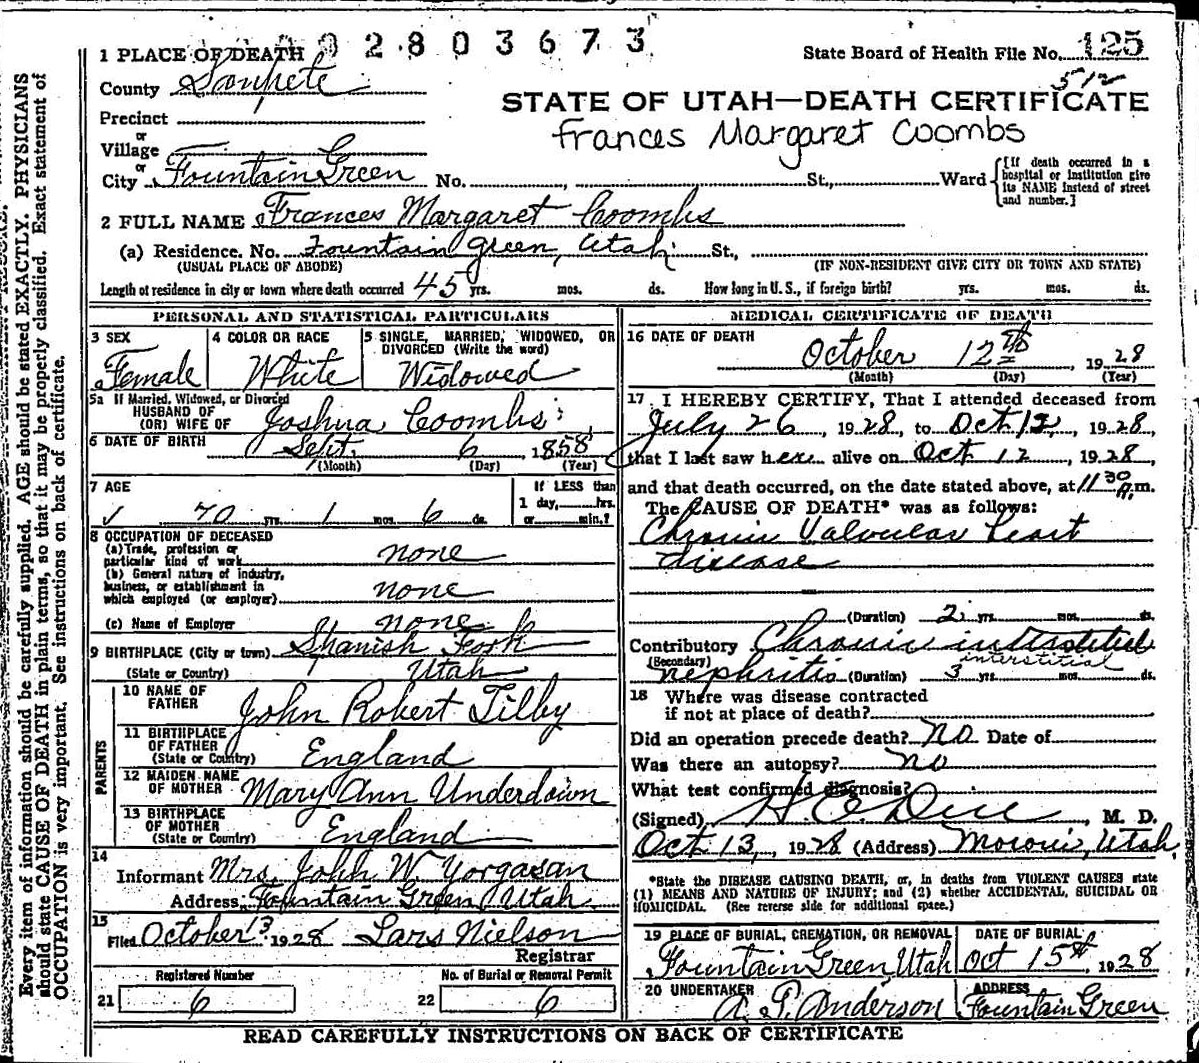 1 PLACE OF DEATH 2 8 0 3 6 7 3 State Board of Health File No. 125
County Sanpete 512
STATE OF UTAH—DEATH CERTIFICATE
Precinct
Frances Margaret Coombs
or
Village
or
City Fountain Green No. St., Ward
[If death occurred in a hospital or institution give its NAME instead of street and number.]
2 FULL NAME Frances Margaret Coombs
(a) Residence. No. Fountain Green, Utah St.,
(USUAL PLACE OF ABODE) (IF NON-RESIDENT GIVE CITY OR TOWN AND STATE)
Length of residence in city or town where death occurred 45 yrs. mos. ds. How long in U. S., if foreign birth? yrs. mos. ds.
PERSONAL AND STATISTICAL PARTICULARS
3 SEX 4 COLOR OR RACE 5 SINGLE, MARRIED, WIDOWED, OR
DIVORCED (Write the word)
Female White Widowed
5a If Married, Widowed, or Divorced
HUSBAND OF
(OR) WIFE OF Joshua Coombs
6 DATE OF BIRTH Sept. 6, 1858
(Month) (Day) (Year)
7 AGE If LESS than
1 day, hrs.
70 yrs. 1 mos. 6 ds. or min.?
8 OCCUPATION OF DECEASED
(a) Trade, profession or
particular kind of work none
(b) General nature of industry,
business, or establishment in
which employed (or employer) none
(c) Name of Employer none
9 BIRTHPLACE (City or town) Spanish Fork
(State or Country) Utah
PARENTS
10 NAME OF
FATHER John Robert Tilby
11 BIRTHPLACE
OF FATHER
(State or Country) England
12 MAIDEN NAME
OF MOTHER Mary Ann Underdown
13 BIRTHPLACE
OF MOTHER
(State or Country) England
14
Informant Mrs. John W. Yorgasan
Address Fountain Green Utah
15
Filed October 13 1928 Lars Nielson
Registrar
Registered Number No. of Burial or Removal Permit
21 6 22 6
MEDICAL CERTIFICATE OF DEATH
16 DATE OF DEATH
October 12th 1928
(Month) (Day) (Year)
17 I HEREBY CERTIFY, That I attended deceased from
July 26, 1928, to Oct 12, 1928,
that I last saw her alive on Oct 12, 1928,
and that death occurred, on the date stated above, at 11 30 A.m.
The CAUSE OF DEATH* was as follows:
Chronic Valvular Heart
disease
(Duration) 2 yrs. mos. ds.
Contributory Chronic
(Secondary) interstitial
nephritis (Duration) 3 yrs. mos. ds.
18 Where was disease contracted
if not at place of death?
Did an operation precede death? no Date of
Was there an autopsy? no
What test confirmed diagnosis?
(Signed) M. D.
Oct 13, 1928 (Address) Moroni, Utah
*State the DISEASE CAUSING DEATH, or, in deaths from VIOLENT CAUSES state
(1) MEANS AND NATURE OF INJURY; and (2) whether ACCIDENTAL, SUICIDAL OR
HOMICIDAL. (See reverse side for additional space.)
19 PLACE OF BURIAL, CREMATION, OR REMOVAL DATE OF BURIAL
Fountain Green Utah Oct 15th, 1928
20 UNDERTAKER ADDRESS
A. P. Anderson Fountain Green
READ CAREFULLY INSTRUCTIONS ON BACK OF CERTIFICATE
Every item of information should be carefully supplied. AGE should be stated EXACTLY. PHYSICIANS
should state CAUSE OF DEATH in plain terms, so that it may be properly classified. Exact statement of
OCCUPATION is very important. See instructions on back of certificate.